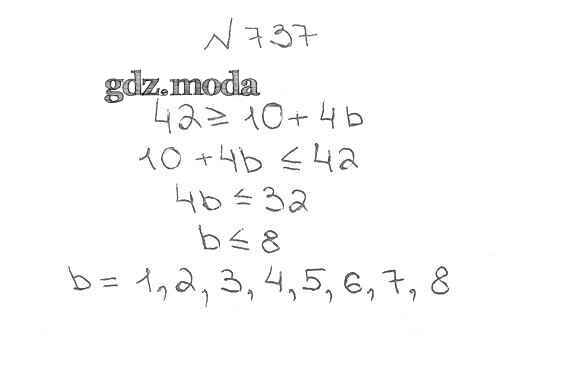 № 737
gdz.moda
42 ≥ 10 + 4b
10 + 4b ≤ 42
4b ≤ 32
b ≤ 8
b = 1, 2, 3, 4, 5, 6, 7, 8